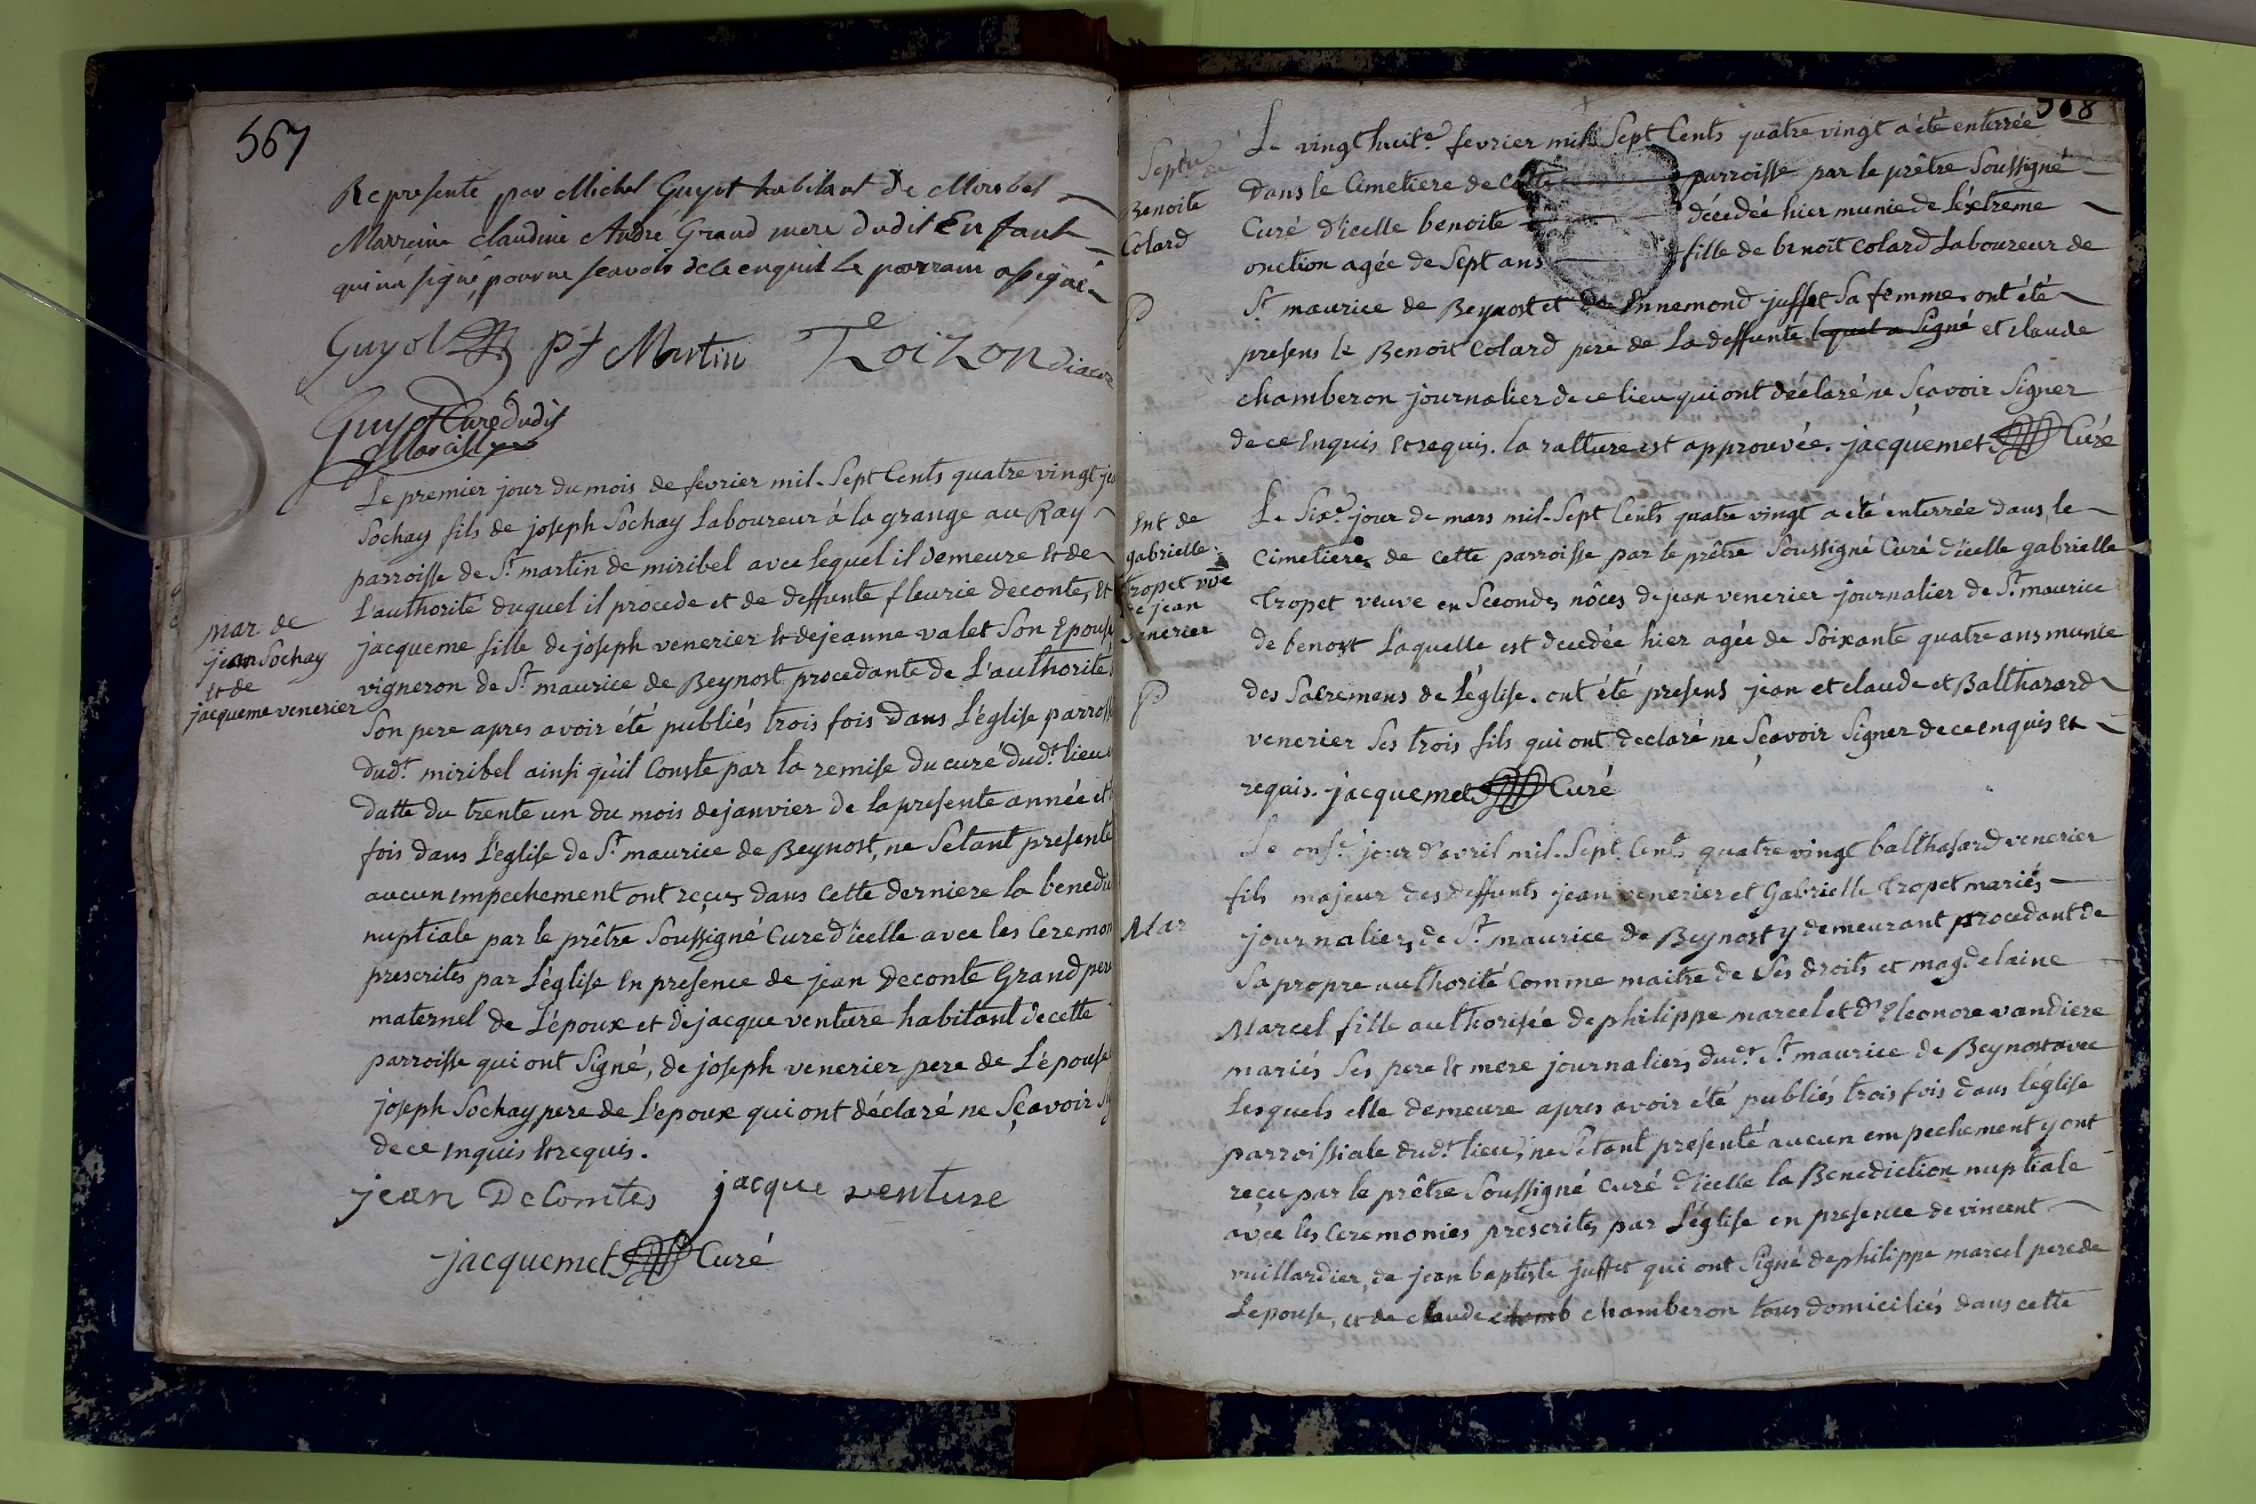 567
Represente par Michel Guyot habitant de Miribel
Marreine Claudine André Grand mere dudit Enfant
qui na signé pour ne scavoir de ce enquit Le parrain a signé
Guyot pt Martin Loizon diacre
Guyot Curé dudit
Marcilly
Le premier jour du mois de fevrier mil-Sept Cents quatre vingt
Sochay fils de joseph Sochay Laboureur à la grange au Ray
parroisse de St martin de miribel avec lequel il demeure et de
L'authorité duquel il procede et de deffunte fleurie deconte, et
mar. de
jean Sochay
et de
jacqueme venerier
jacqueme fille de joseph venerier et de jeanne valet Son Epouse
vigneron de St maurice de Beynost procedante de L'authorité
Son pere apres avoir été publiés trois fois dans L'église
dudt miribel ainsi qu'il Conste par la remise du curé dudt lieu
datte du trente un du mois de janvier de la presente année et
fois dans L'eglise de St maurice de Beynost, ne Setant presenté
aucun empechement ont reçus dans cette derniere la
nuptiale par le prêtre Soussigné Curé d'icelle avec les
prescrites par L'église En presence de jean Deconte Grand pere
maternel de L'époux et de jacque venture habitant de cette
parroisse qui ont Signé, de joseph venerier pere de L'épouse
joseph Sochay pere de L'epoux qui ont déclaré ne Sçavoir
de ce enquis et requis.
jean DeComtes jacque venture
jacquemet Curé
568
Benoite
Colard
P
Le vingt huite fevrier mil Sept Cents quatre vingt a été enterrée
Dans le Cimetiere de Cette parroisse par le prêtre Soussigné
Curé d'icelle benoite décedée hier munie de L'extrême
onction agée de Sept ans fille de benoit Colard Laboureur de
St maurice de Beynost et de Ennemond juffet Sa femme. ont été
presens le Benoit Colard pere de La deffunte lequel a Signé et claude
chamberon journalier de ce lieu qui ont déclaré ne Sçavoir Signer
de ce Enquis et requis. la ratture est approuvée. jacquemet Curé
Ent de
gabrielle
tropet vve
de jean
venerier
P
Le Sixe jour de mars mil-Sept Cents quatre vingt a été enterrée dans le
Cimetiere de cette parroisse par le prêtre Soussigné Curé d'icelle gabrielle
tropet veuve en Secondes nôces de jean venerier journalier de St maurice
de benost Laquelle est decedée hier agée de Soixante quatre ans munie
des Sacremens de L'église. ont été presens jean et claude et Balthazard
venerier Ses trois fils qui ont declaré ne Sçavoir Signer de ce enquis et
requis. jacquemet Curé
Mar
Le onse jour d'avril mil-Sept Cents quatre vingt balthasard venerier
fils majeur des deffunts jean venerier et Gabrielle tropet mariés
journaliers de St maurice de Beynost y demeurant procedant de
Sa propre authorité Comme maitre de Ses droits et magdelaine
Marcel fille authorisée de philippe marcel et d'Eleonore vandiere
mariés Ses pere et mere journaliers dudt St maurice de Beynost avec
Lesquels elle demeure apres avoir été publiés trois fois dans l'église
parroissiale dudt lieu, ne Setant presenté aucun empechement y ont
reçu par le prêtre Soussigné Curé d'icelle la Benediction nuptiale
avec les Ceremonies prescrites par L'église en presence de vincent
vuillardier, de jean baptiste juffet qui ont Signé de philippe marcel pere de
Lepouse, et de claude chamb chamberon tous domiciliés dans cette